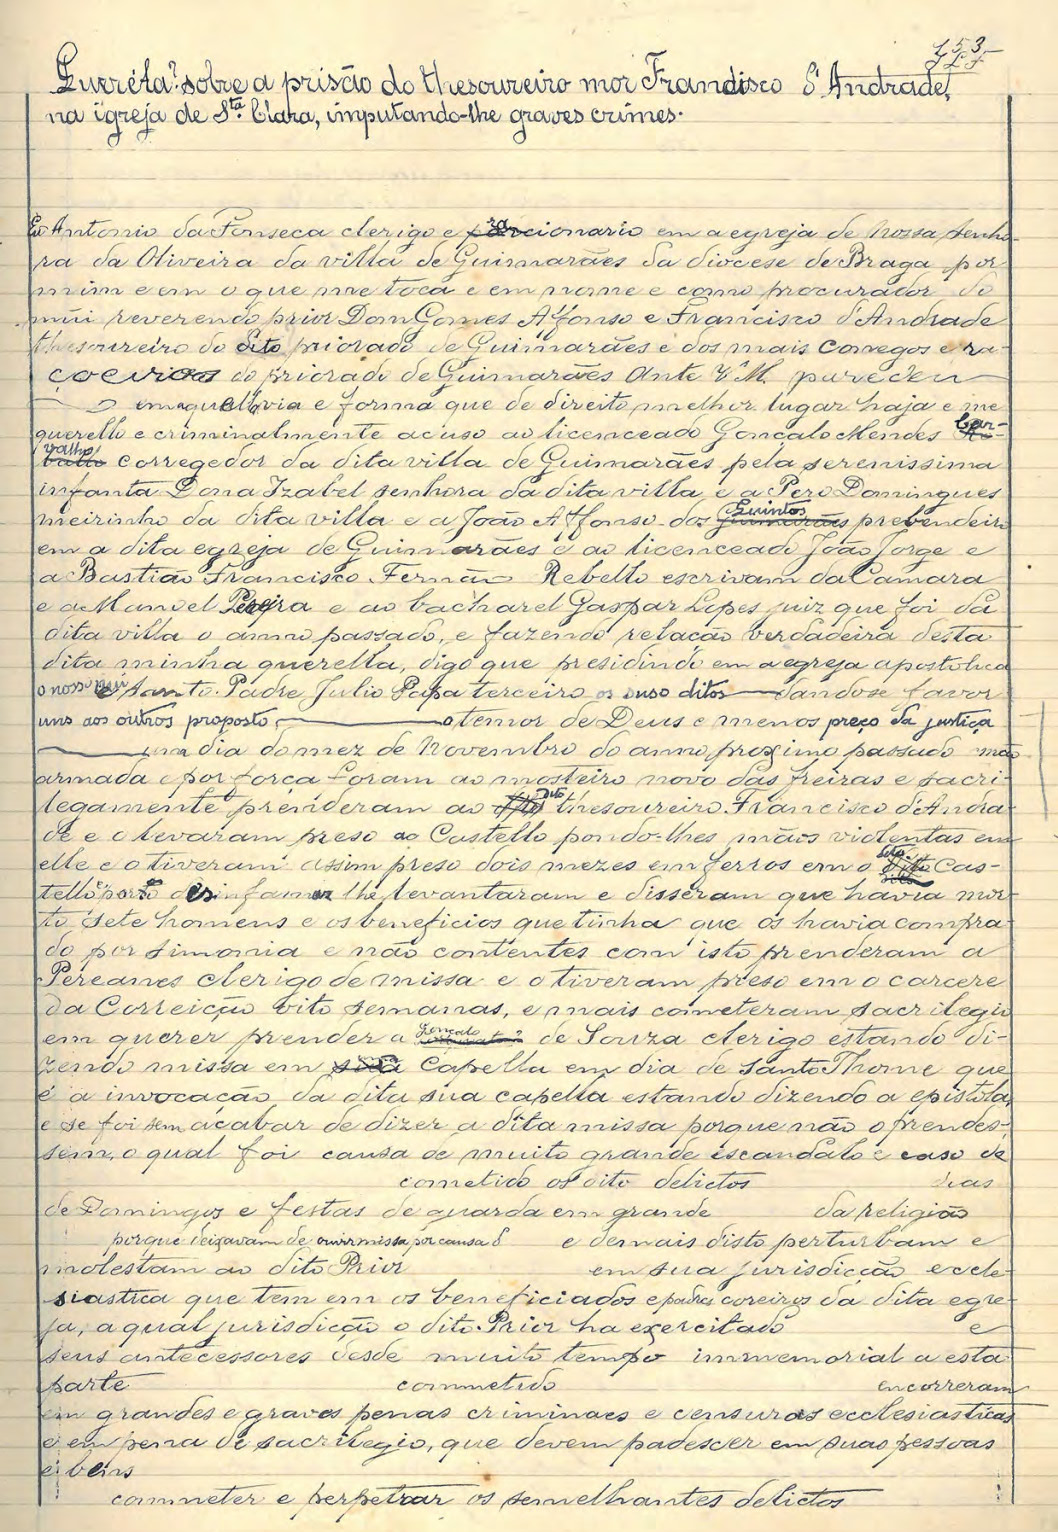 153
Querélla sobre a prisão do thesoureiro mor Francisco d'Andrade,
na igreja de Sta. Clara, imputando-lhe graves crimes.
Eu Antonio da Fonseca clerigo e racionario em a egreja de Nossa Senho-
ra da Oliveira da villa de Guimarães da diocese de Braga por
mim e em o que me toca e em nome e como procurador do
mũi reverendo prior Dom Gomes Affonso e Francisco d'Andrade
thesoureiro do dito priorado de Guimarães e dos mais conegos e ra-
coeiros do priorado de Guimarães Ante V. M. pareceu
em aquella via e forma que de direito melhor lugar haja e me
querello e criminalmente acuso ao licenceado Gonçalo Mendes Car-
valho corregedor da dita villa de Guimarães pela serenissima
infanta Dona Izabel senhora da dita villa, e a Pero Domingues
meirinho da dita villa e a João Affonso dos Quintos prebendeiro
em a dita egreja de Guimarães e ao licenceado João Jorge e
a Bastião Francisco Fernão Rebello escrivam da Camara
e a Manoel Pereira e ao bacharel Gaspar Lopes juiz que foi da
dita villa o anno passado, e fazendo relação verdadeira desta
dita minha querella, digo que presidindo em a egreja apostolica
o nosso mui santo Padre Julio Papa terceiro os suso ditos dandose favor
uns aos outros proposto o temor de Deus e menos preço da justiça
um dia do mez de Novembro do anno proximo passado mão
armada e por força foram ao mosteiro novo das freiras e sacri-
legamente prenderam ao dito thesoureiro Francisco d'Andra-
de e o levaram preso ao Castello pondo-lhes mãos violentas em
elle e o tiveram assim preso dois mezes em ferros em o dito Cas-
tello por o infamar lhe levantaram e disseram que havia mor-
to sete homens e os beneficios que tinha que os havia compra-
do por simonia e não contentes com isto prenderam a
Pereannes clerigo de missa e o tiveram preso em o carcere
da Correição oito semanas, e mais cometeram sacrilegio
em querer prender a Gonçalo de Souza clerigo estando di-
zendo missa em sua Capella em dia de Santo Thome que
é a invocação da dita sua capella estando dizendo a epistola,
e se foi sem acabar de dizer a dita missa porque não o prendes-
sem, o qual foi causa de muito grande escandalo e caso de
cometido os dito delictos dias
de Domingos e festas de guarda em grande da religião
porque deixavam de ouvir missa por causa d e demais disto perturbam e
molestam ao dito Prior em sua jurisdicção eccle-
siastica que tem em os beneficiados e padres coreiros da dita egre-
ja, a qual jurisdicção o dito Prior ha exercitado e
seus antecessores desde muito tempo immemorial a esta
parte commetido encorreram
em grandes e graves penas criminaes e censuras ecclesiasticas
e em pena de sacrilegio, que devem padescer em suas pessoas
e bens
commeter e perpetrar os semelhantes delictos